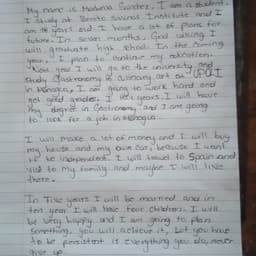 My name is Máwiz Sánchez. I am a student.
I study at Benito Salinas Institute and I
am 18 years old. I have a lot of plans for
future. In seven months, God willing I
will graduate high school. In the coming
year. I plan to continue my education.
Next year I will go to the university and
study gastronomy or culinary art on UPOLI
in Managua, I am going to work hard and
get good grades. I five years I will have
my degree in Gastronomy, and I am going
to look for a job in Managua.
I will make a lot of money and I will buy
my house and my own car, because I want
to be independent. I will travel to Spain and
visit to my family and maybe I will live
there.
In Five years I will be married and in
ten year I will have four children. I will
be very happy and I am going to plan
something, you will achieve it, but you have
to be persistent is everything you do, never
give up.